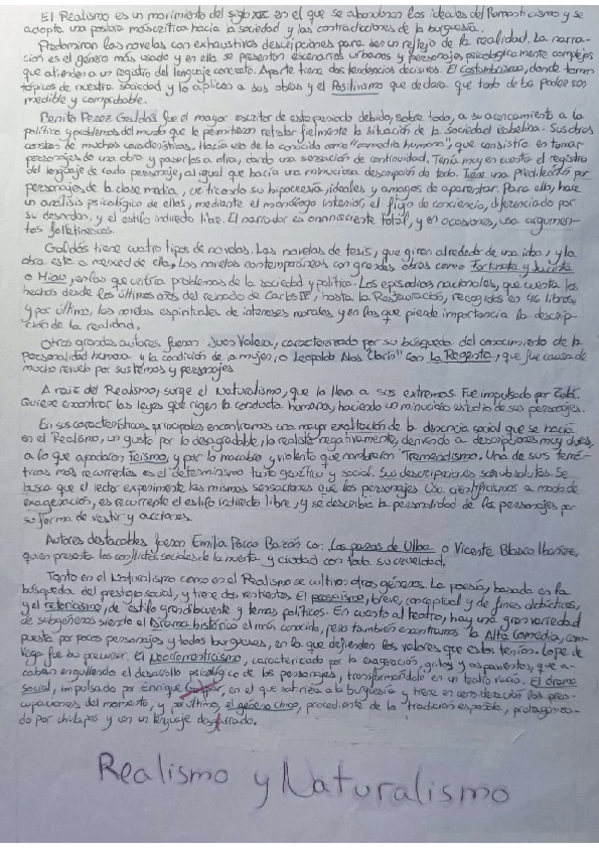 El Realismo es un movimiento del siglo XIX en el que se abandonan los ideales del Romanticismo y se
adopta una postura más crítica hacia la sociedad y las contradicciones de la burguesía.
Predominan las novelas con exhaustivas descripciones para ser un reflejo de la realidad. La narra-
ción es el género más usado y en ella se presentan escenarios urbanos y personajes psicologicamente complejos
que atienden a un registro del lenguaje concreto. Aparte tiene dos tendencias decisivas. El Costumbrismo, donde toman
tópicos de nuestra sociedad y lo aplican a sus obras y el Positivismo que declara que todo debe poder ser
medible y comprobable.
Benito Pérez Galdós fue el mayor escritor de este periodo debido, sobre todo, a su acercamiento a la
política y problemas del mundo que le permitieron retratar fielmente la situación de la sociedad isabelina. Sus obras
constan de muchas características. Hacía uso de lo conocido como "comedia humana", que consistía en tomar
personajes de una obra y pasarlos a otra, dando una sensación de continuidad. Tenía muy en cuenta el registro
del lenguaje de cada personaje, al igual que hacía una minuciosa descripción de todo. Tiene una predilección por
personajes de la clase media, criticando su hipocresía, ideales y amagos de aparentar. Para ello, hace
un análisis psicológico de ellos, mediante el monólogo interior, el flujo de conciencia, diferenciado por
su desorden, y el estilo indirecto libre. El narrador es omnisciente total, y en ocasiones, usa argumen-
tos folletinescos.
Galdós tiene cuatro tipos de novelas. Las novelas de tesis, que giran alrededor de una idea, y la
obra está a merced de ella. Las novelas contemporáneas con grandes obras como Fortunata y Jacinta
o Miau, en las que critica problemas de la sociedad y política. Los episodios nacionales, que cuenta los
hechos desde los últimos años del reinado de Carlos IV, hasta la Restauración, recogidos en 46 libros,
y por último, las novelas espirituales de intereses morales y en las que pierde importancia la descrip-
ción de la realidad.
Otros grandes autores fueron: Juan Valera, caracterizado por su búsqueda del conocimiento de la
personalidad humana y la condición de la mujer, o Leopoldo Alas "Clarín" con La Regenta, que fue causa de
mucho revuelo por sus temas y personajes
A raíz del Realismo, surge el Naturalismo, que la lleva a sus extremos. Fue impulsado por Zola.
Quiere encontrar las leyes que rigen la conducta humana, haciendo un minucioso estudio de sus personajes.
En sus características principales encontramos una mayor exaltación de la denuncia social que se hacía
en el Realismo, un gusto por lo desagradable, lo realista negativamente, derivando a descripciones muy duras,
a lo que apodaron Feismo, y por lo macabro y violento que nombraron Tremendismo. Una de sus temá-
ticas más recurrentes es el determinismo tanto genético y social. Sus descripciones son absolutas. Se
busca que el lector experimente las mismas sensaciones que los personajes. Usa cientificismos a modo de
exageración, es recurrente el estilo indirecto libre, y se describe la personalidad de los personajes por
su forma de vestir y acciones.
Autores destacables fueron Emilia Pardo Bazán con Los pazos de Ulloa o Vicente Blasco Ibáñez,
quien presenta los conflictos sociales de la huerta y ciudad con toda su crueldad.
Tanto en el Naturalismo como en el Realismo se cultivan otros géneros. La poesía, basada en la
búsqueda del prestigio social, y tiene dos vertientes. El prosaismo, breve, conceptual y de fines didácticos,
y el retoricismo, de estilo grandilocuente y temas políticos. En cuanto al teatro, hay una gran variedad
de subgéneros siendo el Drama histórico el más conocido, pero también encontramos la Alta Comedia, com-
puesta por pocos personajes y todos burgueses, en la que defienden los valores que estos tenían. Lope de
Vega fue su precursor. El Neorromanticismo, caracterizado por la exageración, gritos y aspavientos, que a-
caban engullendo el desarrollo psicológico de los personajes, transformándolo en un teatro vacío. El drama
social, impulsado por Enrique, en el que satiriza a la burguesía y tiene en consideración las preo-
cupaciones del momento, y por último, el género chico, procedente de la tradición española, protagoniza-
do por chulapos y con un lenguaje desgarrado.
Realismo y Naturalismo